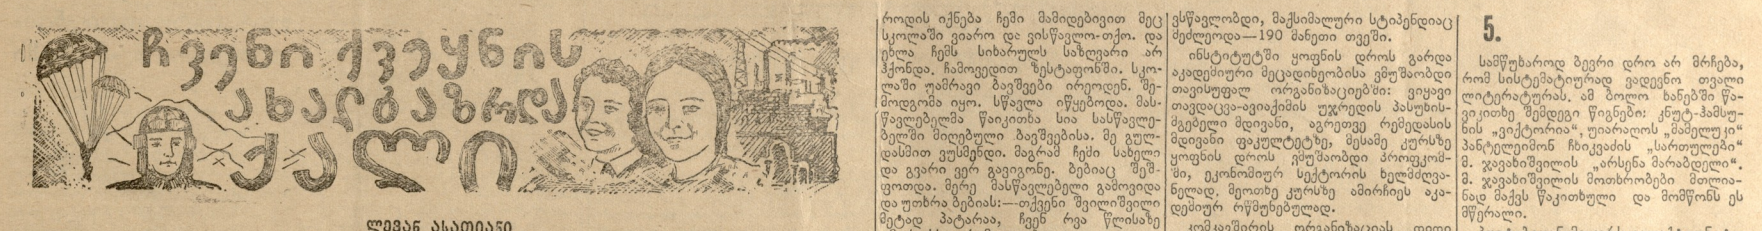 ჩვენი ქვეყნის
ახალგაზრდა
ქალი
ლევან ასათიანი
როდის იქნება ჩემი მამიდებივით მეც
სკოლაში ვიარო და ვისწავლო-თქო. და
ეხლა ჩემს სიხარულს საზღვარი არ
ჰქონდა. ჩამოვედით ზესტაფონში. სკო-
ლაში უამრავი ბავშვები ირეოდენ. შე-
მოდგომა იყო. სწავლა იწყებოდა. მას-
წავლებელმა წაიკითხა სია სასწავლე-
ბელში მიღებული ბავშვებისა. მე გულ-
დასმით ვუსმენდი. მაგრამ ჩემი სახელი
და გვარი ვერ გავიგონე. ბებიაც შეშ-
ფოთდა. მერე მასწავლებელი გამოვიდა
და უთხრა ბებიას:—თქვენი შვილიშვილი
მეტად პატარაა, ჩვენ რვა წლისაზე
ვსწავლობდი, მაქსიმალური სტიპენდიაც
მეძლეოდა—190 მანეთი თვეში.
ინსტიტუტში ყოფნის დროს გარდა
აკადემიური მეცადინეობისა ვმუშაობდი
თავისუფალ ორგანიზაციებში: ვიყავი
თავდაცვა-ავიაქიმის უჯრედის პასუხის-
მგებელი მდივანი, აგრეთვე რემედასის
მდივანი ფაკულტეტზე, მესამე კურსზე
ყოფნის დროს ვმუშაობდი პროფკომ-
ში, ეკონომიურ სექტორის ხელმძღვა-
ნელად. მეოთხე კურსზე ამირჩიეს აკა-
დემიურ რწმუნებულად.
კომკავშირის ორგანიზაციას დიდი
5.
სამწუხაროდ ბევრი დრო არ მრჩება,
რომ სისტემატიურად ვადევნო თვალი
ლიტერატურას. ამ ბოლო ხანებში წა-
ვიკითხე შემდეგი წიგნები: კნუტ-ჰამსუ-
ნის „ვიქტორია“, უიარაღოს „მამელუკი“
პანტელეიმონ ჩხიკვაძის „სართულები“
მ. ჯავახიშვილის „არსენა მარაბდელი“.
მ. ჯავახიშვილის მოთხრობები მთლია-
ნად მაქვს წაკითხული და მომწონს ეს
მწერალი.